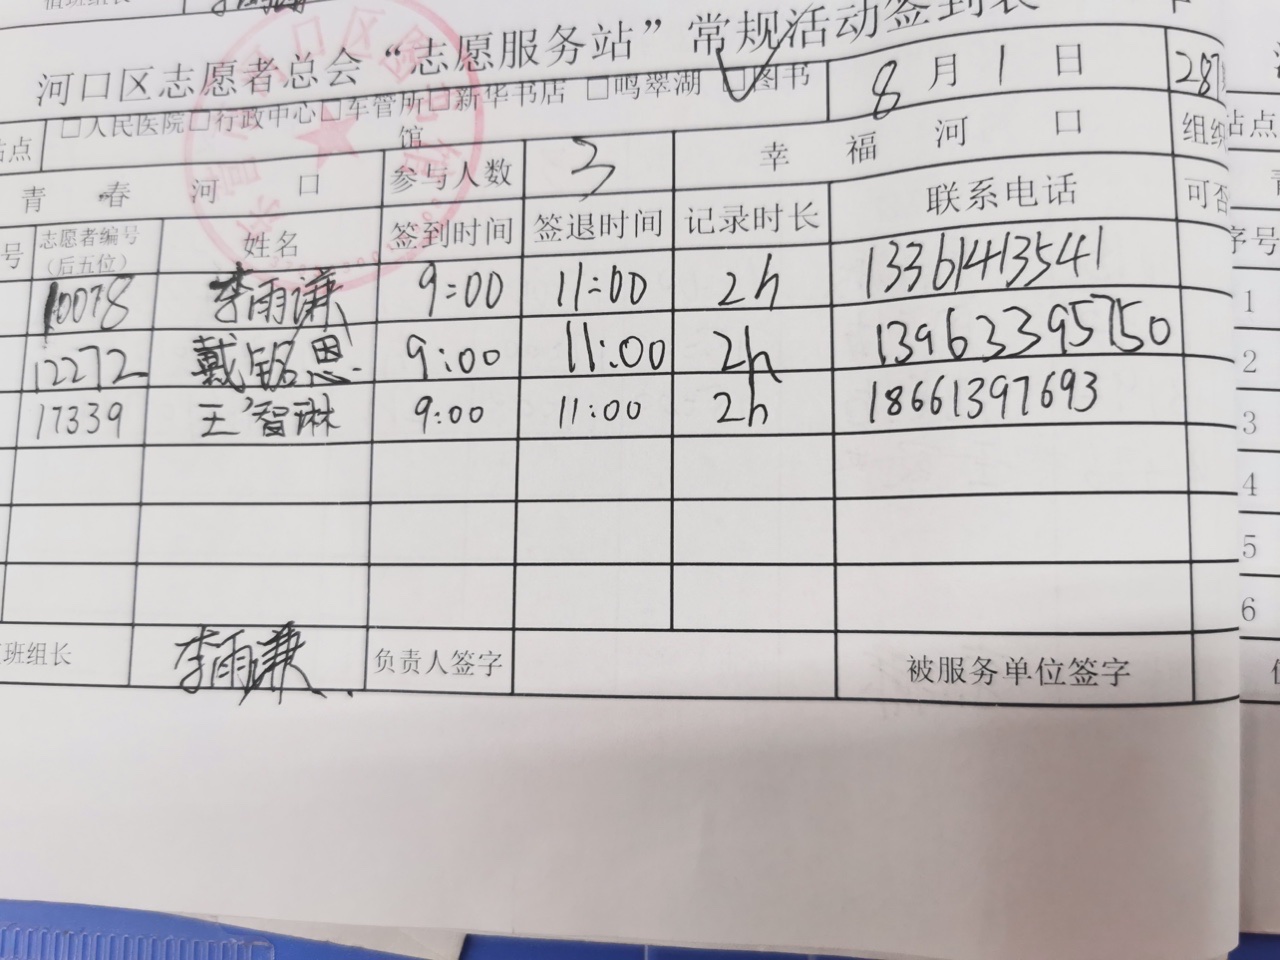 值班组长
河口区志愿者总会“志愿服务站”常规活动签到表
站点 □人民医院□行政中心□车管所□新华书店 □鸣翠湖 ☑图书馆 8月1日
青春河口 参与人数 3 幸福河口 组织
号 志愿者编号（后五位） 姓名 签到时间 签退时间 记录时长 联系电话 可否
10078 李雨谦 9:00 11:00 2h 13361413541
12272 戴铭恩 9:00 11:00 2h 13963395750
17339 王智琳 9:00 11:00 2h 18661397693
班组长 李雨谦 负责人签字 被服务单位签字
站点
序号
1
2
3
4
5
6